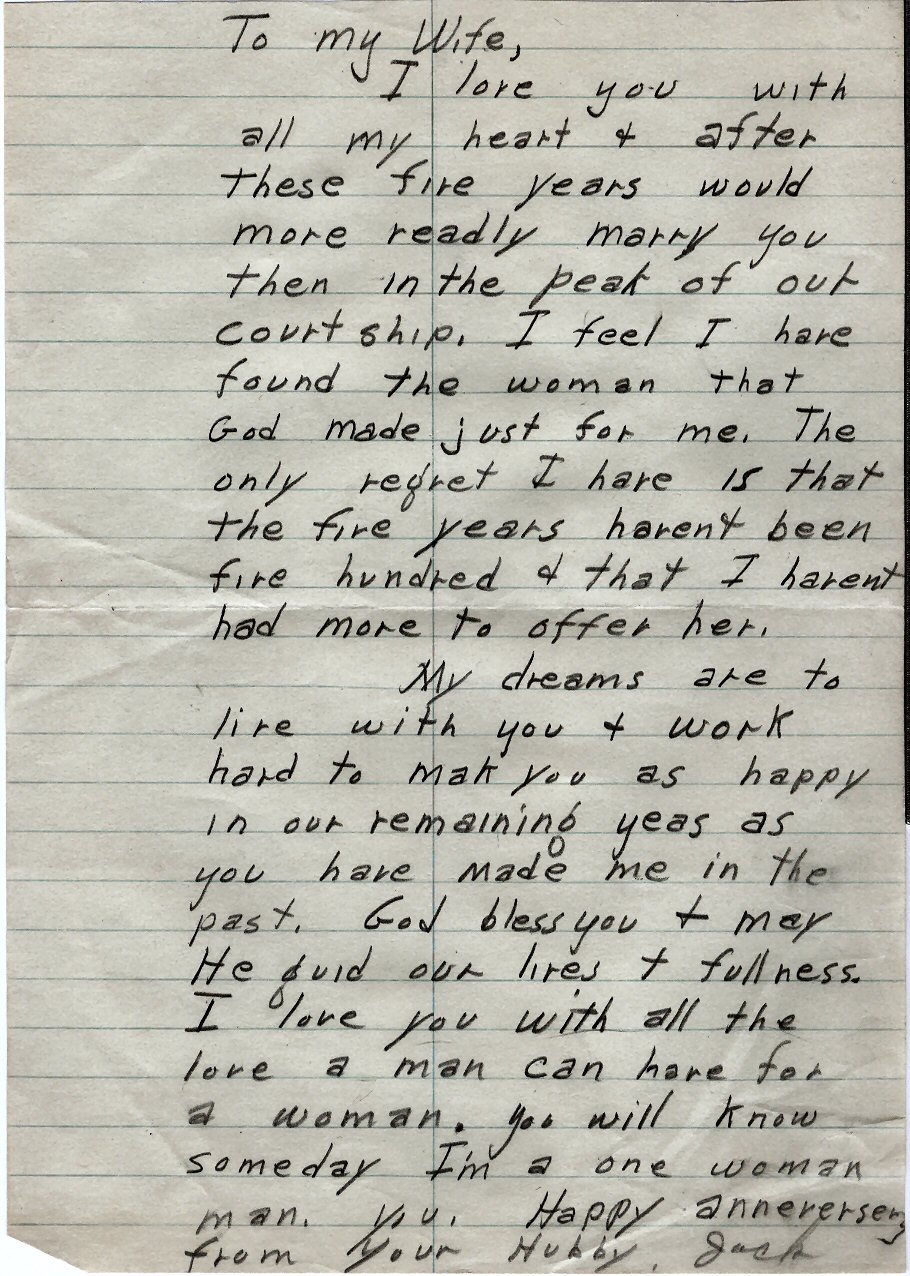 To my Wife,
I love you with
all my heart & after
these five years would
more readly marry you
then in the peak of our
courtship. I feel I have
found the woman that
God made just for me. The
only regret I have is that
the five years havent been
five hundred & that I havent
had more to offer her.
My dreams are to
live with you & work
hard to mak you as happy
in our remaining yeas as
you have made me in the
past. God bless you & may
He guid our lives t fullness.
I love you with all the
love a man can have for
a woman. you will know
someday I'm a one woman
man. you. Happy anneversery
from your Hubby, Jack